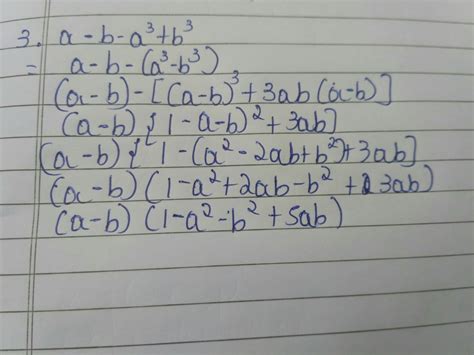 3. a - b - a³ + b³
= a - b - (a³ - b³)
(a - b) - [(a - b)³ + 3ab (a - b)]
(a - b) { 1 - a - b)² + 3ab]
(a - b) { 1 - (a² - 2ab + b²) + 3ab]
(a - b) (1 - a² + 2ab - b² + 3ab)
(a - b) (1 - a² - b² + 5ab)